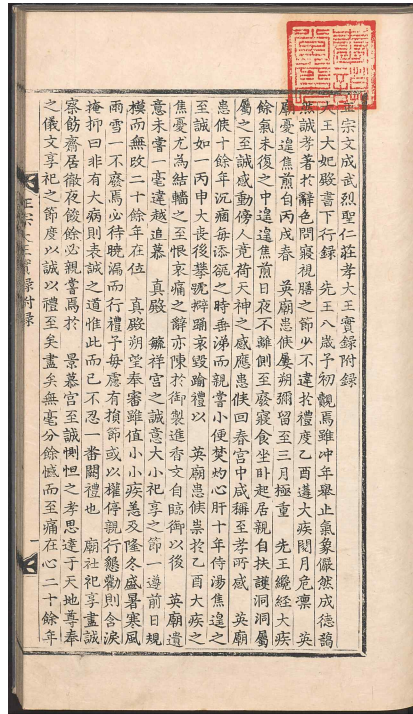 宗文成武烈聖仁莊孝大王實錄附錄
大王大妃殿書下行錄 先王八歲予初覿焉雖冲年舉止氣象儼然成德藹
然誠孝著於辭色問寢視膳之節少不違於禮度乙酉遘大疾閱月危凛 英
廟憂遑焦煎自丙戌春 英廟患候屢朔彌留至三月極重 先王纔經大疾
餘氣未復之中遑遑焦煎日夜不離側至廢寢食坐卧起居親自扶護洞洞屬
屬之至誠感動傍人竟荷天神之感應患候回春宫中咸稱至孝所感 英廟
患候十餘年沉痼每添谻之時垂涕而親嘗小便焚灼心肝十年侍湯焦遑之
至誠如一丙申大喪後攀號擗踊哀毁踰禮以 英廟患候祟於乙酉大疾之
焦憂尤為結轖之至恨哀痛之辭亦陳於御製進香文自臨御以後 英廟遺
意未甞一毫違越追慕 真殿 毓祥宫之誠意大小祀享之節一遵前日規
模而無改二十餘年在位 真殿朔望奉審雖值小小疾恙及隆冬盛暑寒風
雨雪一不廢焉必待曉漏而行禮予每慮有損節或以權停親行懇勸則含淚
掩抑曰非有大病則表誠之道惟此而已不忍一番闕禮也 廟社祀享盡誠
察飭齋居徹夜餕餘必親嘗焉於 景慕宫至誠惻怛之孝思達于天地尊奉
之儀文享祀之節度以誠以禮至矣盡矣無毫分餘憾而至痛在心二十餘年
正宗大王實錄附錄
一